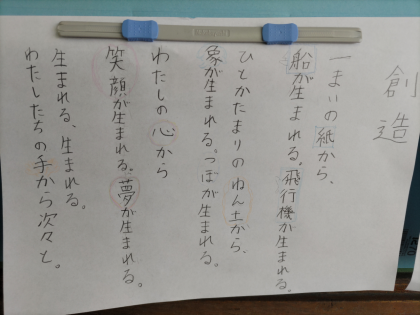 創造
一まいの紙から、
船が生まれる。飛行機が生まれる。
ひとかたまりのねん土から、
象が生まれる。つぼが生まれる。
わたしの心から
笑顔が生まれる。夢が生まれる。
生まれる、生まれる。
わたしたちの手から次々と。